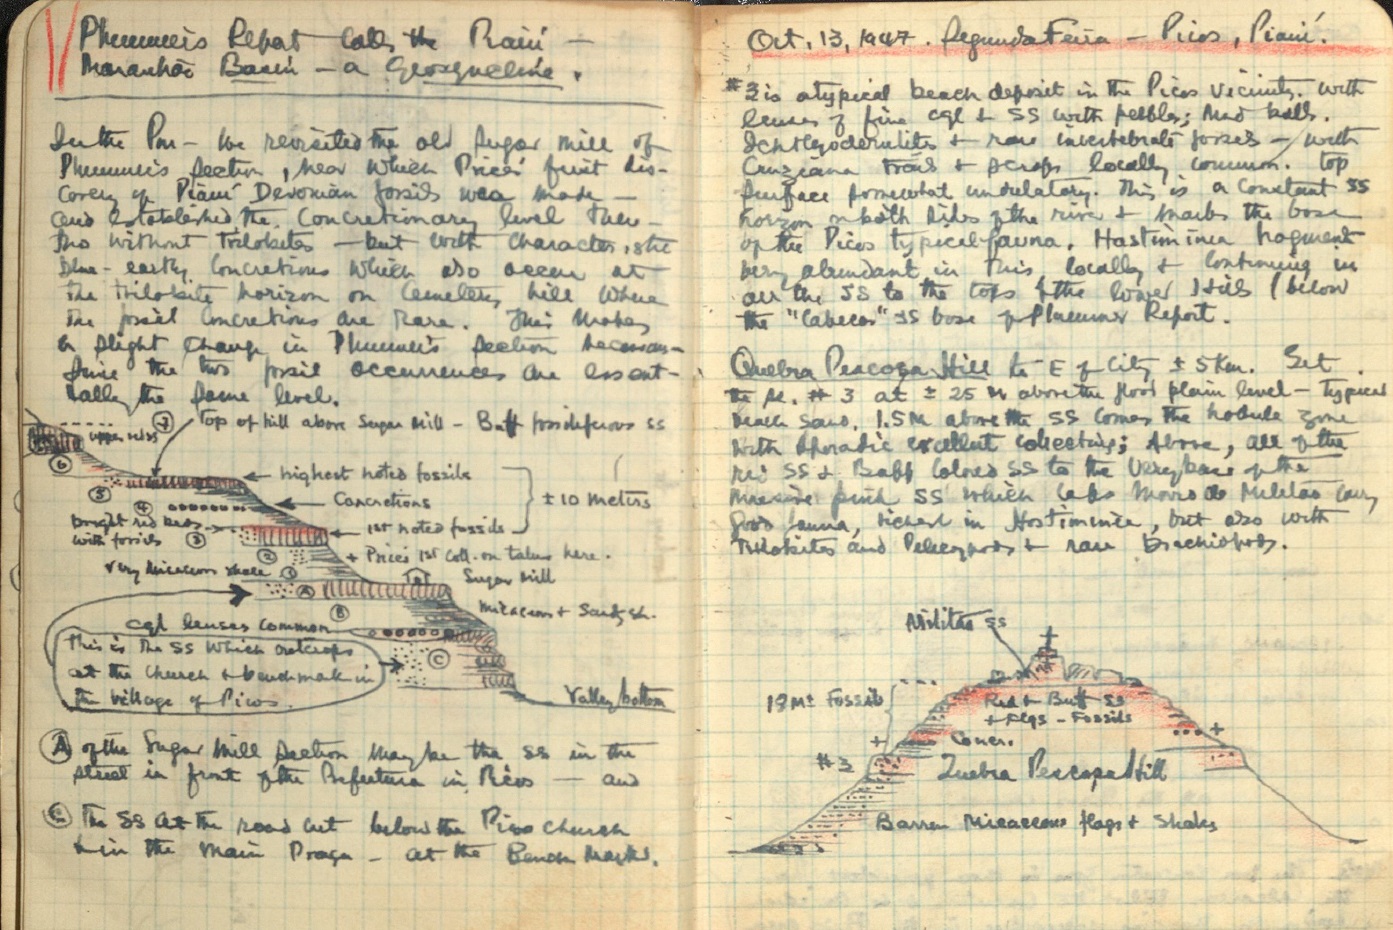 Plummer's Report Calls the Piauí —
Maranhão Basin — a Geosyncline.
In the Pm — We revisited the old Sugar mill of
Plummer's Section, near which Price's first dis-
covery of Piauí Devonian fossils was made —
and established the Concretionary level there —
tho without Trilobites — but with characteristic
blue-earthy Concretions which also occur at
the trilobite horizon on Cemetery hill where
the fossil concretions are rare. This makes
a slight change in Plummer's section
Since the two fossil occurrences are essent-
ially the same level.
Top of hill above Sugar Mill — Buff fossiliferous ss
7
upper red ss
6
5
highest noted fossils
Concretions
± 10 meters
4
bright red beds
with fossils
3
1st noted fossils
2
+ Price's 1st coll. on taken here.
very micaceous shale
1
Sugar Mill
A
B
micaceous + Sandy sh.
cgl lenses common
This is the SS which outcrops
at the church + benchmark in
the village of Picos.
C
Valley bottom
A of the Sugar Mill Section may be the SS in the
street in front of the Prefeitura in Picos — and
C The SS at the road cut below the Picos church
+ in the main Praça — at the Bench Mark.
Oct, 13, 1947. Segunda Feira — Picos, Piauí.
#3 is a typical beach deposit in the Picos vicinity. With
lenses of fine cgl & SS with pebbles; Mud balls.
Ichthyodorulites + rare invertebrate fossils — with
Cruziana trails + scraps locally common. Top
surface somewhat undulatory. This is a constant SS
horizon on both sides of the river + marks the base
of the Picos typical fauna. Hastiminia fragments
very abundant in this, locally + continuing in
all the SS to the tops of the lower Hills (below
the "Cabecas" SS base of Plummer Report.
Quebra Pescoza Hill to E of City ± 5 Km. Set
the #3 at ± 25 M above the flood plain level — typical
beach sand. 1.5 M above the SS comes the nodule zone
with sporadic excellent collecting; Above, all of the
red SS + Buff colored SS to the very base of the
massive pink SS which caps Morro de Militão carry
good fauna, richest in Hastiminia, but also with
Trilobites and Pelecypods + rare brachiopods.
Militão SS
18 Mt Fossils
Red + Buff SS
+ Flgs — Fossils
+
+
Concr.
#3
Quebra Pescoza Hill
Barren Micaceous flags + Shales